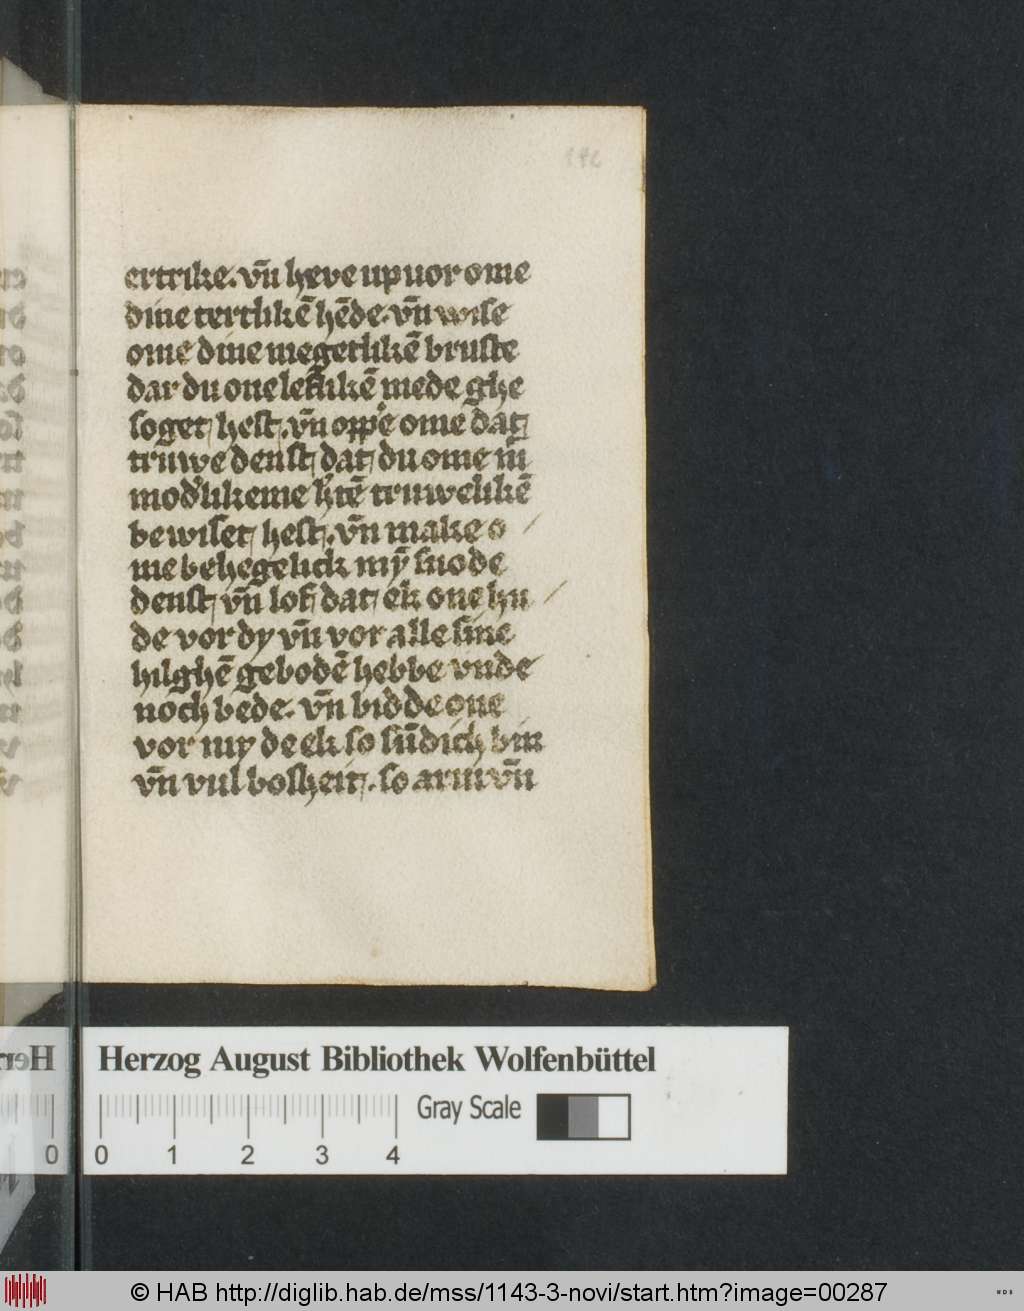 142
ertrike. vn̄ heve up uor ome
dine tertlikē hēde. vn̄ wise
ome dine megetlikē bruste
dar du one leflikē mede ghe
soget hest. vn̄ oppe ome dat
truwe denst dat du ome in
mod'likeme h'tē truwelikē
bewiset hest. vn̄ make o
me behegelick mȳ snode
denst vn̄ lof dat ek one hu
de vor dy vn̄ vor alle sine
hilghē gebodē hebbe vnde
noch bede. vn̄ bidde one
vor my de ek so sūdich bin
vn̄ vul bosheit. so arm vn̄
Herzog August Bibliothek Wolfenbüttel
Gray Scale
0 0 1 2 3 4
© HAB http://diglib.hab.de/mss/1143-3-novi/start.htm?image=00287